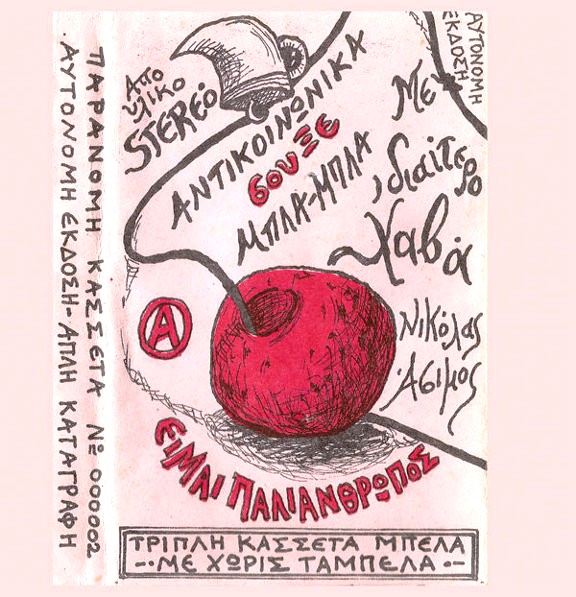 ΠΑΡΑΝΟΜΗ ΚΑΣΣΕΤΑ Νο 000002
ΑΥΤΟΝΟΜΗ ΕΚΔΟΣΗ-ΑΠΛΗ ΚΑΤΑΓΡΑΦΗ
ΑΥΤΟΝΟΜΗ
ΕΚΔΟΣΗ
Από
υλικό
STEREO
ΑΝΤΙΚΟΙΝΩΝΙΚΑ
σουξε
ΜΠΛΑ-ΜΠΛΑ
Με
ιδιαίτερο
χαβά
Νικόλας
Άσιμος
A
ΕΙΜΑΙ ΠΑΛΙΑΝΘΡΩΠΟΣ
ΤΡΙΠΛΗ ΚΑΣΣΕΤΑ ΜΠΕΛΑ
-·ΜΕ ΧΩΡΙΣ ΤΑΜΠΕΛΑ·-